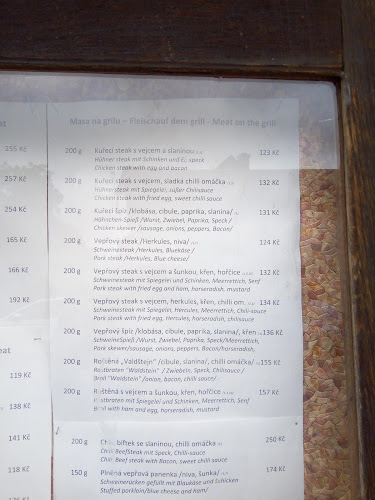 at
Masa na grilu – Fleischauf dem grill - Meat on the grill
355 Kč
200 g Kuřecí steak s vejcem a slaninou 123 Kč
Hühner steak mit Schinken und Ei, speck
Chicken steak with egg and bacon
257 Kč
200 g Kuřecí steak s vejcem, sladká chilli omáčka 132 Kč
Hühnersteak mit Spiegelei, süßer Chilisauce
Chicken steak with fried egg, sweet chilli sauce
254 Kč
200 g Kuřecí špíz /klobása, cibule, paprika, slanina/ 131 Kč
Hähnchen-Spieß /Wurst, Zwiebel, Paprika, Speck /
Chicken skewer /sausage, onions, peppers, Bacon/
165 Kč
200 g Vepřový steak /Herkules, niva/ 124 Kč
Schweinesteak /Herkules, Bluekäse /
Pork steak /Herkules, Blue cheese/
166 Kč
200 g Vepřový steak s vejcem a šunkou, křen, hořčice 132 Kč
Schweinesteak mit Spiegelei und Schinken, Meerrettich, Senf
Pork steak with fried egg and ham, horseradish, mustard
192 Kč
200 g Vepřový steak s vejcem, herkules, křen, chilli om. 134 Kč
Schweinesteak mit Spiegelei, Herkules, Meerrettich, Chili-sauce
Pork steak with fried egg, Hercules, horseradish, chillisauce
200 g Vepřový špíz /klobása, cibule, paprika, slanina/, křen 136 Kč
SchweineSpieß /Wurst, Zwiebel, Paprika, Speck/, Meerrettich
Pork skewer/sausage, onions, peppers, Bacon/horseradish,
eat
200 g „Valdštejn" /cibule, slanina/, chilli omáčka 155 Kč
"Waldstein" / Zwiebeln, Speck, Chilisauce /
"Waldstein" /onion, bacon, chilli sauce/
119 Kč
200 g Roštěná s vejcem a šunkou, křen, hořčice 157 Kč
Rostbraten mit Spiegelei und Schinken, Meerrettich, Senf
with ham and egg, horseradish, mustard
138 Kč
141 Kč
200 g bíftek se slaninou, chilli omáčka 250 Kč
Chili BeefSteak mit Speck, Chili-sauce
Chili Beef steak with Bacon, sweet chilli sauce
118 Kč
150 g Plněná vepřová panenka /niva, šunka/ 174 Kč
Schweinerücken gefüllt mit Blaukäse und Schicken
Stuffed porkloin/blue cheese and ham/
176 Kč